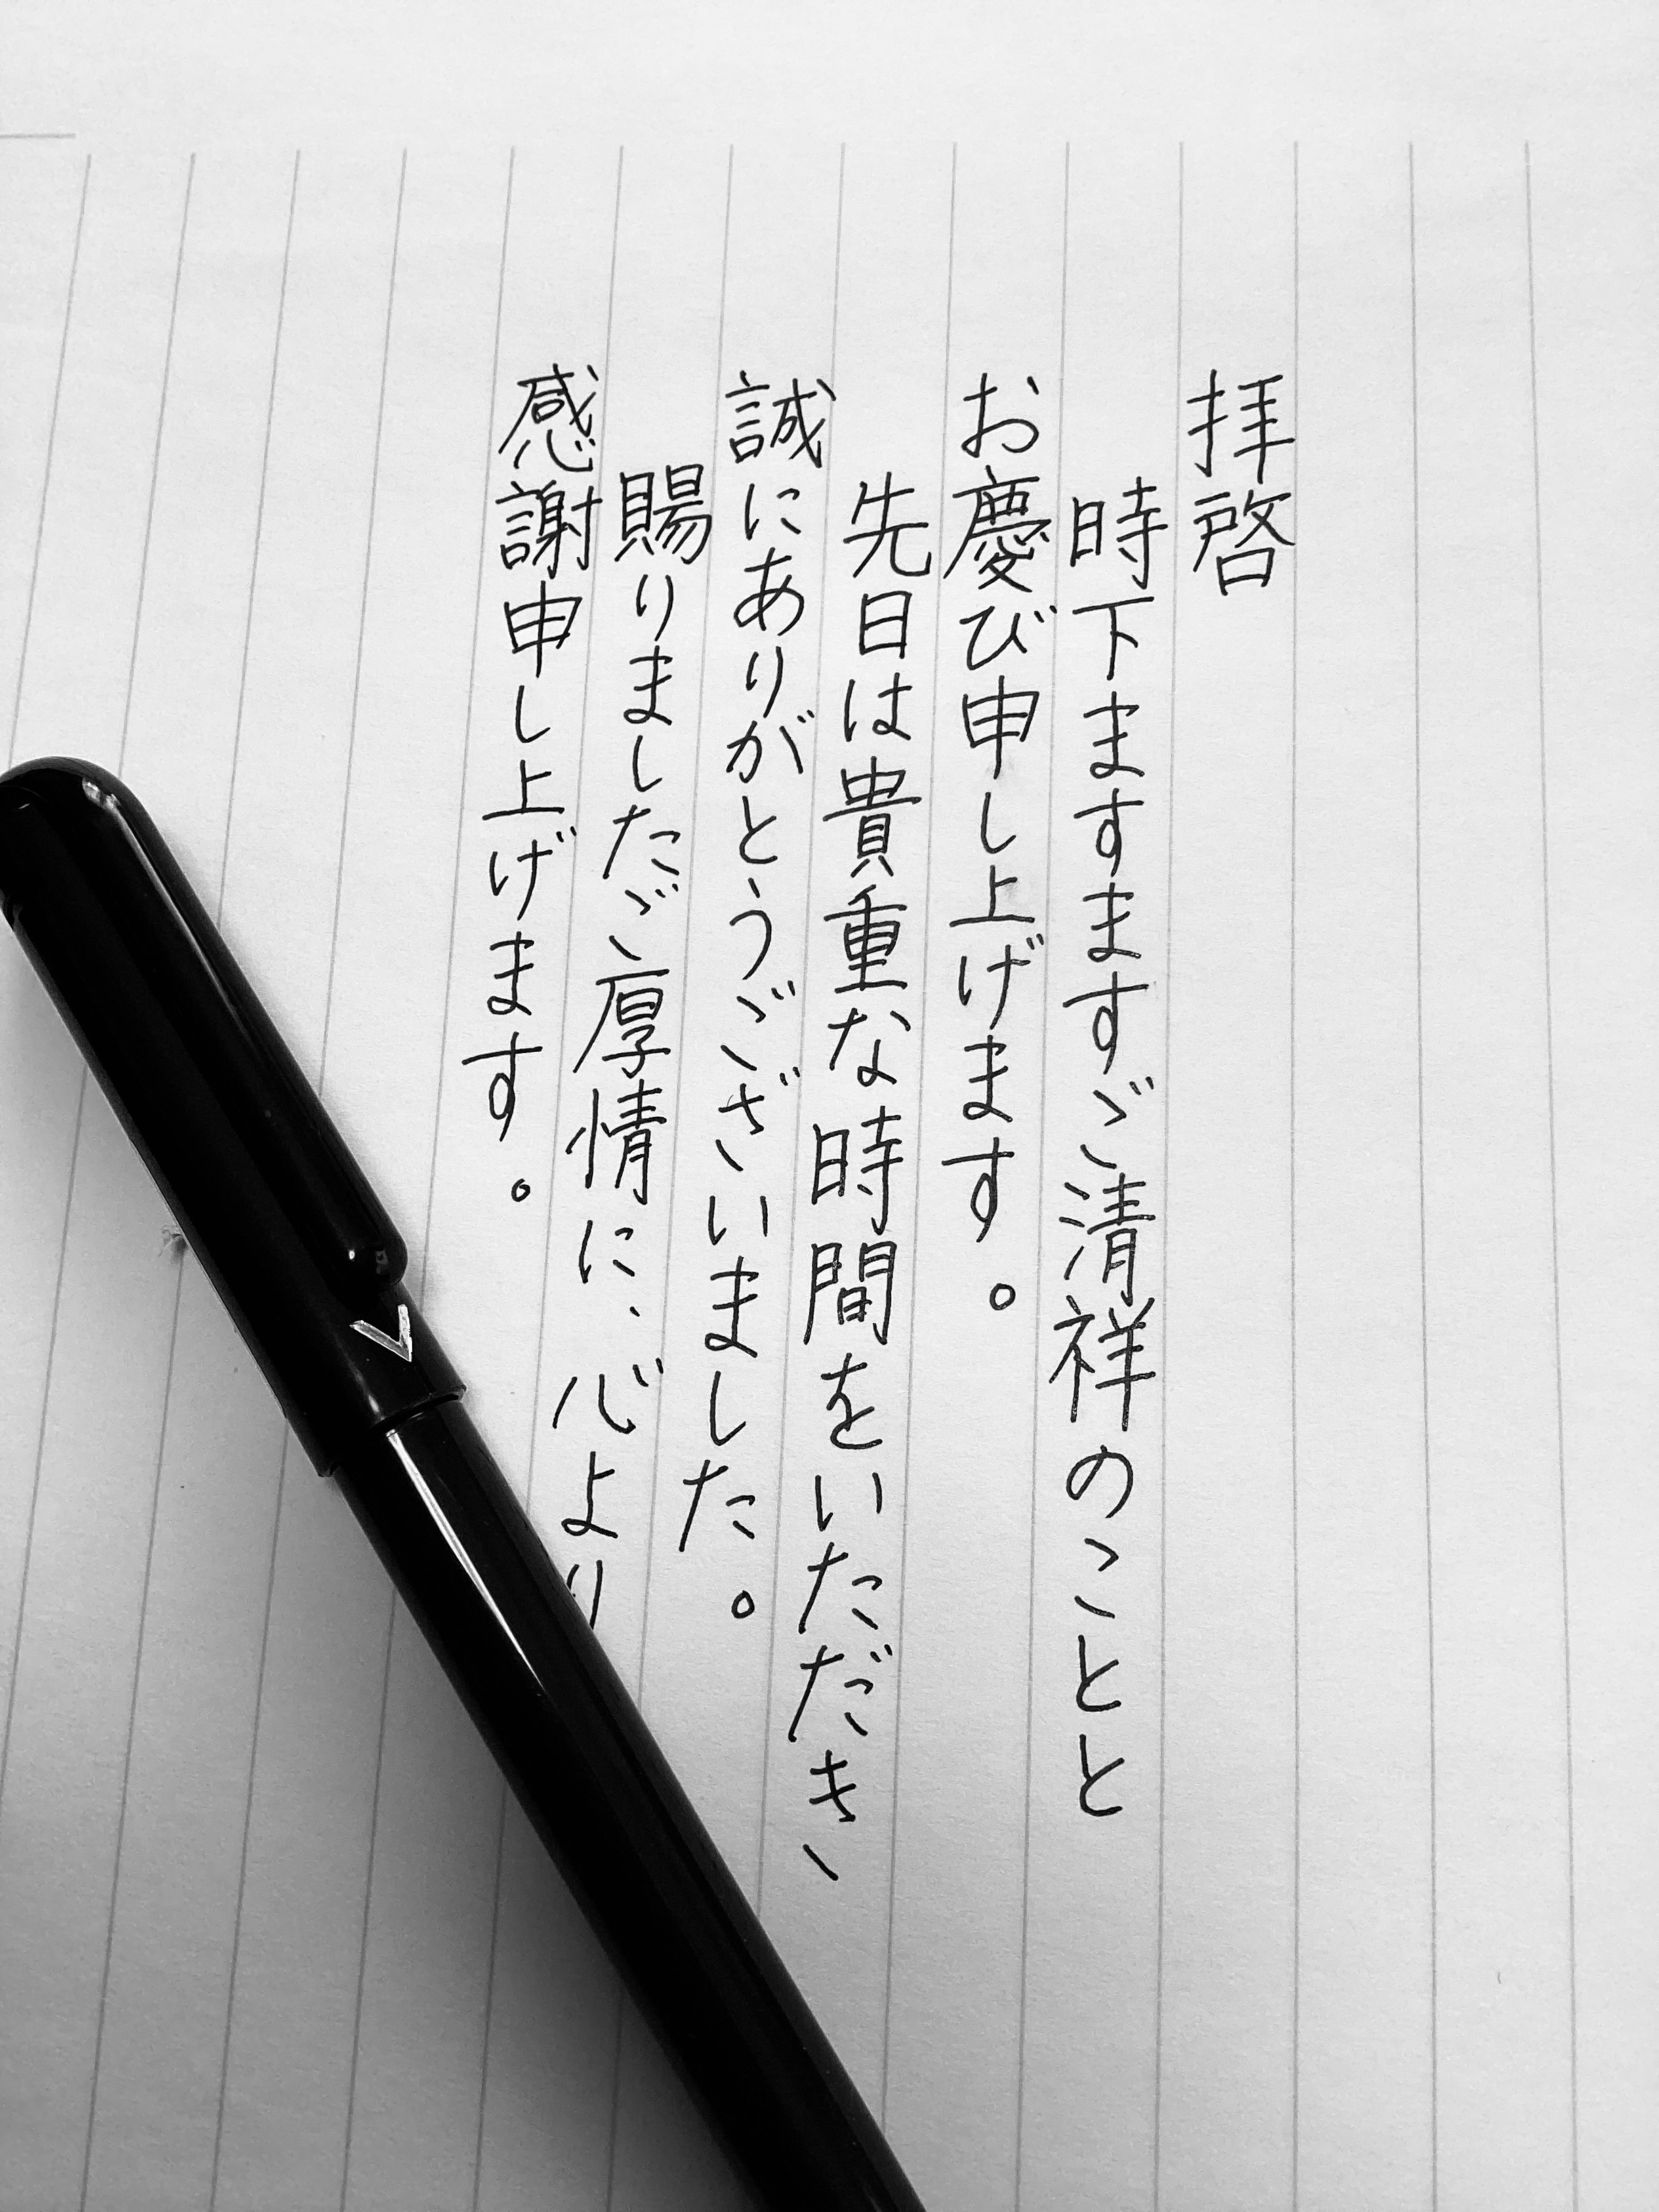 拝啓
時下ますますご清祥のことと
お慶び申し上げます。
先日は貴重な時間をいただき、
誠にありがとうございました。
賜りましたご厚情に、心より
感謝申し上げます。